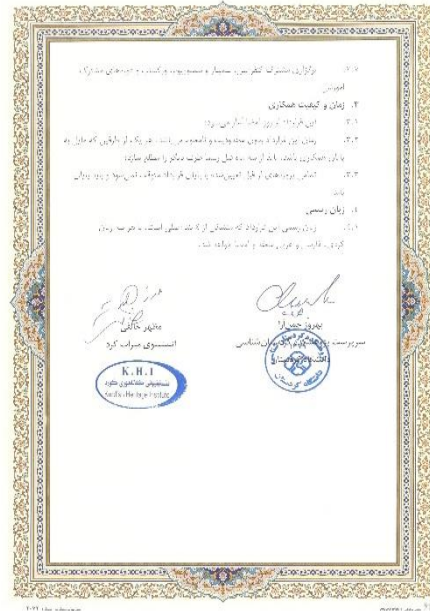 ۲.۷. برگزاری مشترک کنفرانس، سمینار و سمپوزیوم، ورکشاپ و دوره‌های مشترک
آموزشی
۳. زمان و کیفیت همکاری
۳.۱. این قرارداد از روز امضا آغاز می‌شود.
۳.۲. زمان این قرارداد بدون محدودیت و نامحدود می‌باشد. هر یک از طرفین که مایل به
پایان همکاری باشد، باید از سه ماه قبل رسماً طرف دیگر را مطلع سازد.
۳.۳. تمامی برنامه‌های از قبل تعیین‌شده با پایان قرارداد متوقف نمی‌شود و باید پایان
یابد.
۴. زبان رسمی
۴.۱. زبان رسمی این قرارداد که متشکل از ۴ بند اصلی است، به هر سه زبان
کردی، فارسی و عربی
مظهر خالقی
انستیتوی میراث کرد
بهروز چمن‌آرا
سرپرست پژوهشکده کردستان‌شناسی
دانشگاه کردستان
K.H.I
Kurdish Heritage Institute
دانشگاه کردستان